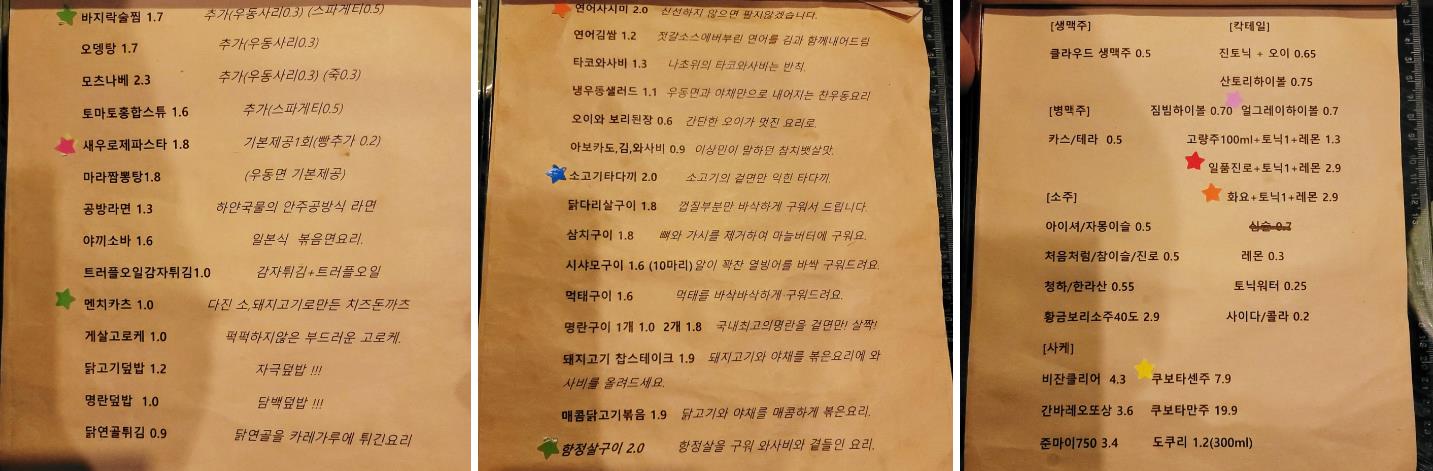 바지락술찜 1.7 추가(우동사리0.3) (스파게티0.5)
오뎅탕 1.7 추가(우동사리0.3)
모츠나베 2.3 추가(우동사리0.3) (죽0.3)
토마토홍합스튜 1.6 추가(스파게티0.5)
새우로제파스타 1.8 기본제공1회(빵추가 0.2)
마라짬뽕탕1.8 (우동면 기본제공)
공방라면 1.3 하얀국물의 안주공방식 라면
야끼소바 1.6 일본식 볶음면요리.
트러플오일감자튀김1.0 감자튀김+트러플오일
멘치카츠 1.0 다진 소,돼지고기로만든 치즈돈까츠
게살고로케 1.0 퍽퍽하지않은 부드러운 고로케.
닭고기덮밥 1.2 자극덮밥 !!!
명란덮밥 1.0 담백덮밥 !!!
닭연골튀김 0.9 닭연골을 카레가루에 튀긴요리
연어사시미 2.0 신선하지 않으면 팔지않겠습니다.
연어김쌈 1.2 젓갈소스에버부린 연어를 김과 함께내어드림
타코와사비 1.3 나초위의 타코와사비는 반칙.
냉우동샐러드 1.1 우동면과 야채만으로 내어지는 찬우동요리
오이와 보리된장 0.6 간단한 오이가 멋진 요리로.
아보카도,김,와사비 0.9 이상민이 말하던 참치뱃살맛.
소고기타다끼 2.0 소고기의 겉면만 익힌 타다끼.
닭다리살구이 1.8 껍질부분만 바삭하게 구워서 드립니다.
삼치구이 1.8 뼈와 가시를 제거하여 마늘버터에 구워요.
시샤모구이 1.6 (10마리) 알이 꽉찬 열빙어를 바싹 구워드려요.
먹태구이 1.6 먹태를 바삭바삭하게 구워드려요.
명란구이 1개 1.0 2개 1.8 국내최고의명란을 겉면만! 살짝!
돼지고기 찹스테이크 1.9 돼지고기와 야채를 볶은요리에 와
사비를 올려드세요.
매콤닭고기볶음 1.9 닭고기와 야채를 매콤하게 볶은요리.
항정살구이 2.0 항정살을 구워 와사비와 곁들인 요리.
[생맥주] [칵테일]
클라우드 생맥주 0.5 진토닉 + 오이 0.65
산토리하이볼 0.75
[병맥주] 짐빔하이볼 0.70 얼그레이하이볼 0.7
카스/테라 0.5 고량주100ml+토닉1+레몬 1.3
일품진로+토닉1+레몬 2.9
[소주] 화요+토닉1+레몬 2.9
아이셔/자몽이슬 0.5 심술 0.7
처음처럼/참이슬/진로 0.5 레몬 0.3
청하/한라산 0.55 토닉워터 0.25
황금보리소주40도 2.9 사이다/콜라 0.2
[사케]
비잔클리어 4.3 쿠보타센주 7.9
간바레오또상 3.6 쿠보타만주 19.9
준마이750 3.4 도쿠리 1.2(300ml)